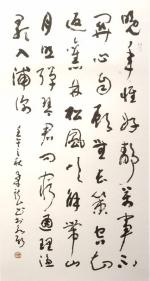 晚年惟好靜萬事不
關心自顧無長策空知
返舊林松風吹解帶山
月照彈琴君問窮通理漁
歌入浦深